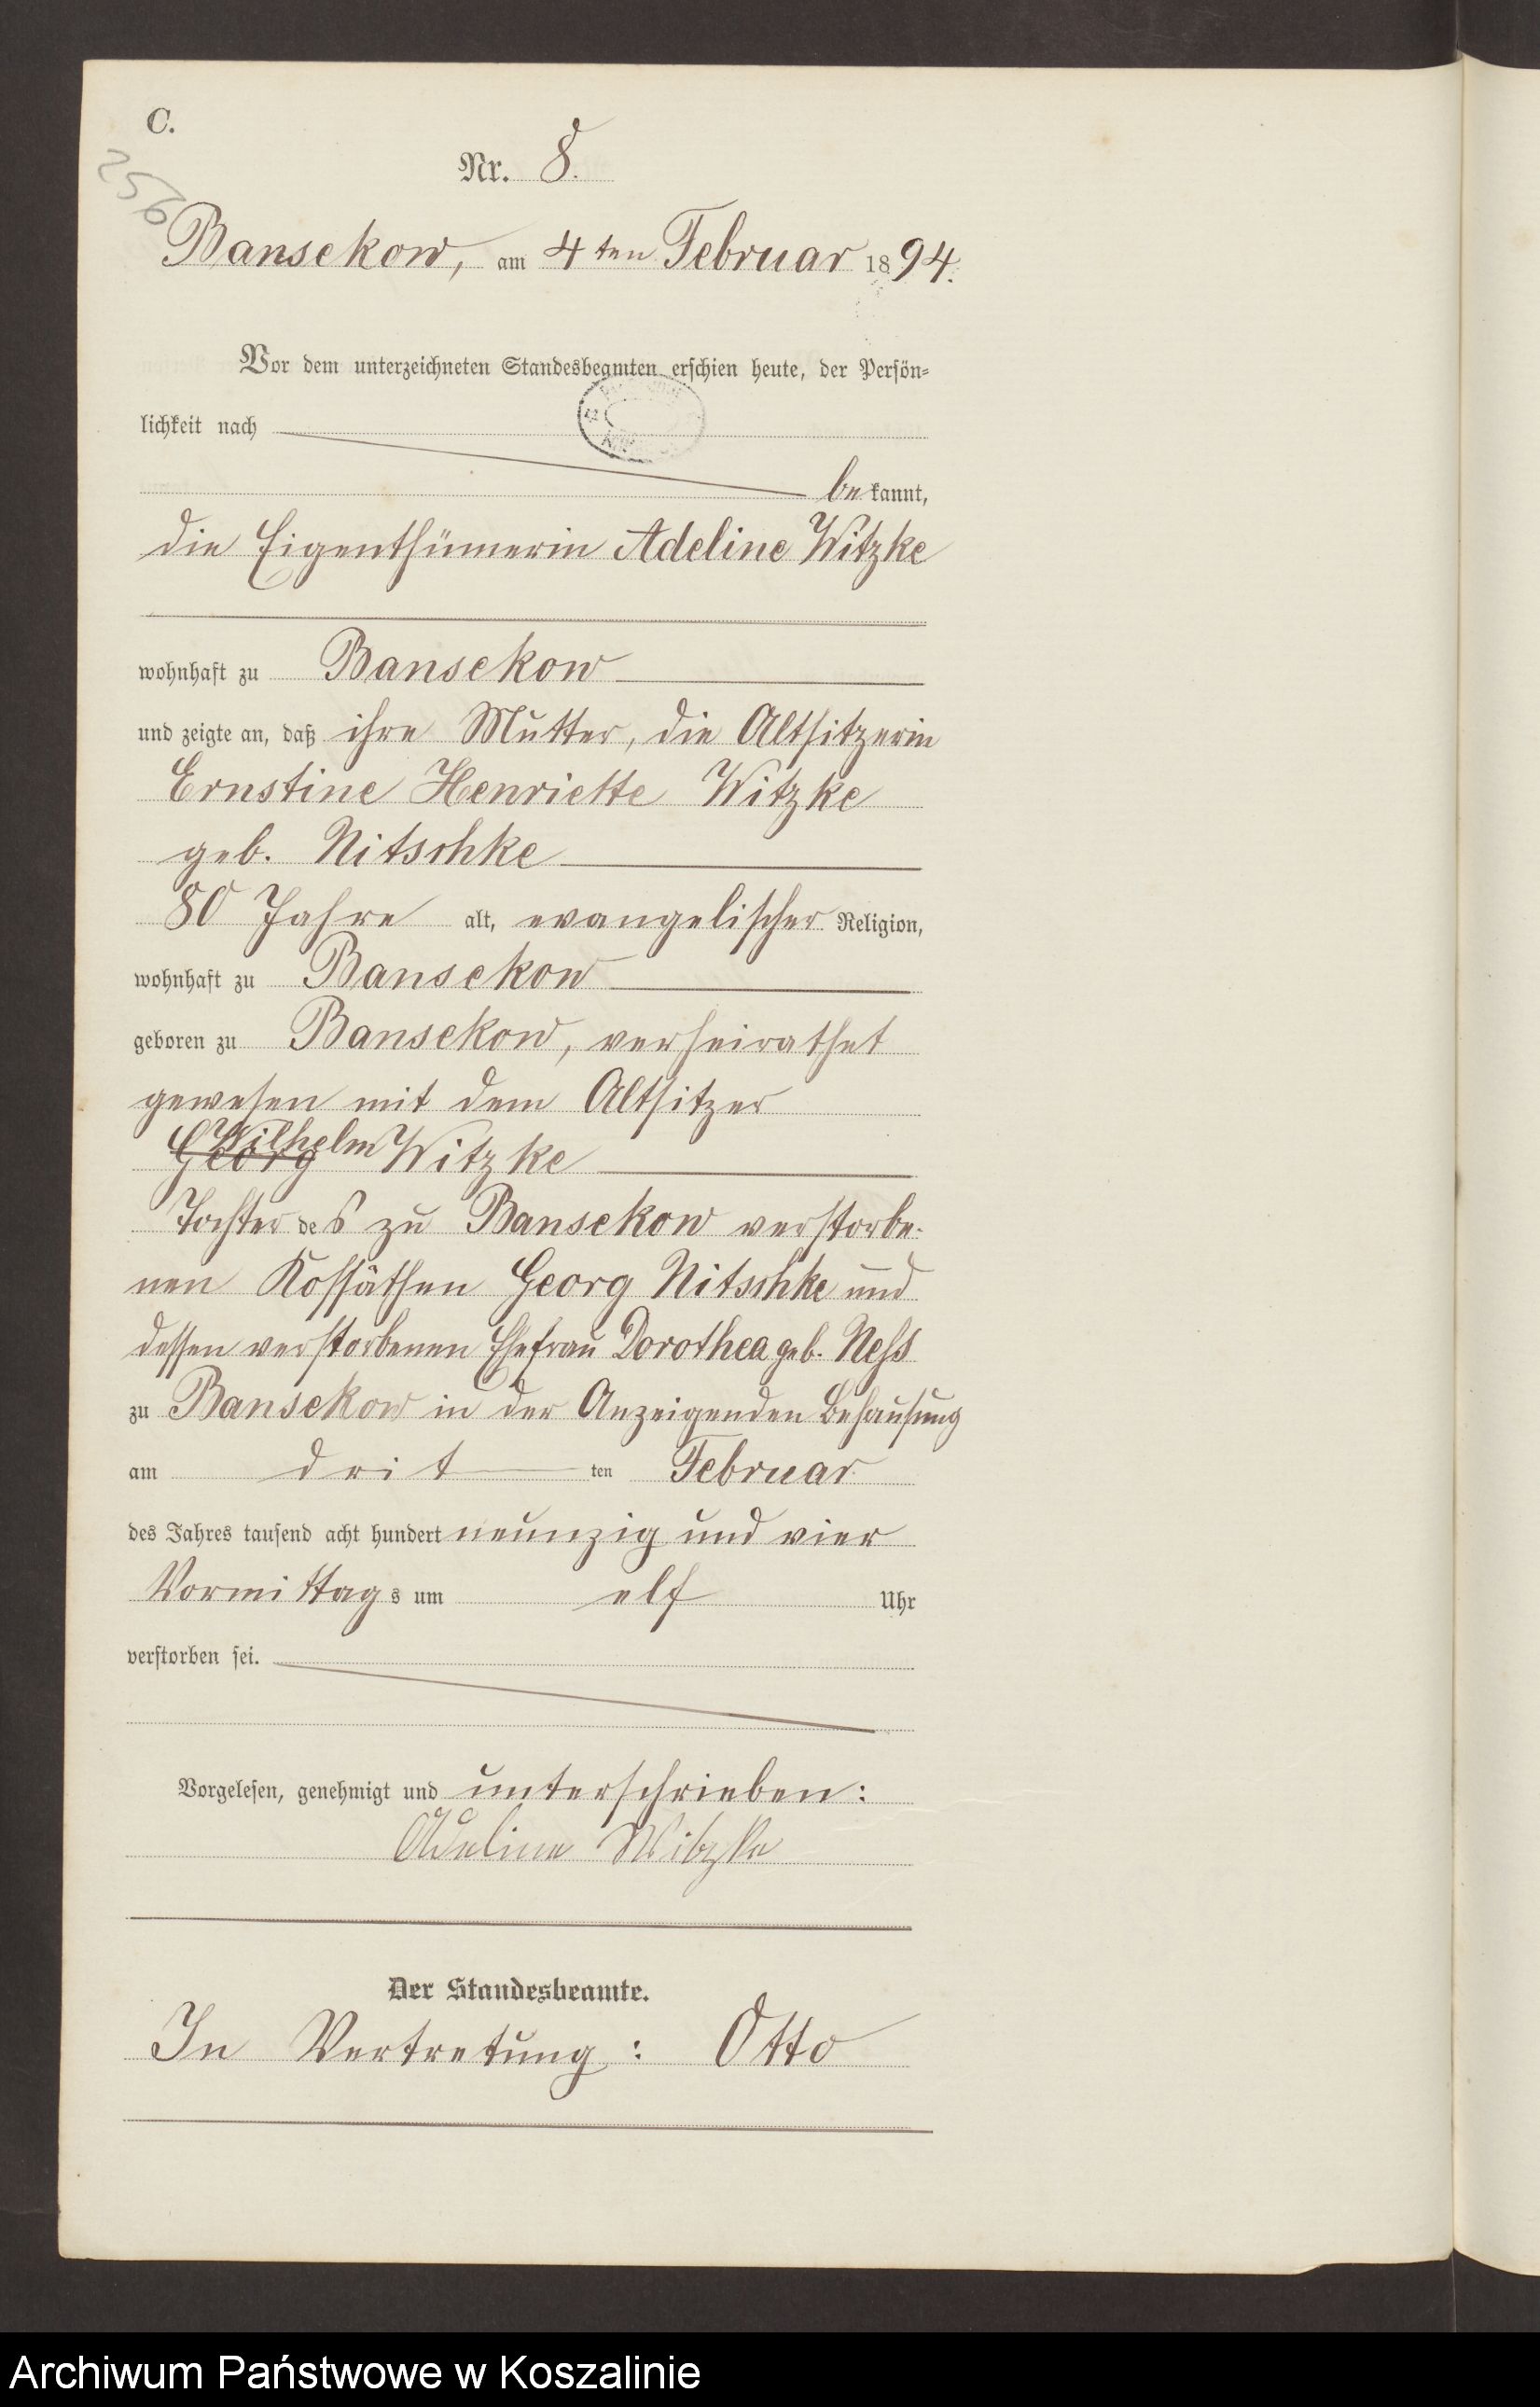 C.
256
Nr. 8.
Bansekow, am 4ten Februar 1894.
Vor dem unterzeichneten Standesbeamten erschien heute, der Persön-
lichkeit nach
bekannt,
die Eigenthümerin Adeline Witzke
wohnhaft zu Bansekow
und zeigte an, daß ihre Mutter, die Altsitzerin
Ernstine Henriette Witzke
geb. Nitschke
80 Jahre alt, evangelischer Religion,
wohnhaft zu Bansekow
geboren zu Bansekow, verheirathet
gewesen mit dem Altsitzer
Wilhelm
Georg Witzke
Tochter des zu Bansekow verstorbe-
nen Kossäthen Georg Nitschke und
dessen verstorbenen Ehefrau Dorothea geb. Ness
zu Bansekow in der Anzeigenden Behausung
am drit ten Februar
des Jahres tausend acht hundert neunzig und vier
Vormittags um elf Uhr
verstorben sei.
Vorgelesen, genehmigt und unterschrieben:
Adeline Witzke
Der Standesbeamte.
In Vertretung: Otto
Archiwum Państwowe w Koszalinie